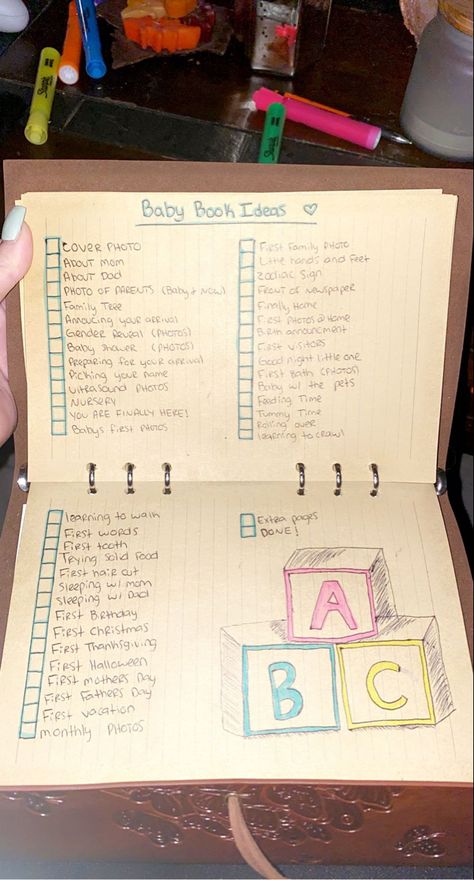 Baby Book Ideas
COVER PHOTO
ABOUT MOM
ABOUT DAD
PHOTO OF PARENTS (Baby + NOW)
Family Tree
Annoucing your arrival
Gender Reveal (PHOTOS)
Baby Shower (PHOTOS)
Preparing for your arrival
Picking your name
Ultrasound PHOTOS
NURSERY
YOU ARE FINALLY HERE!
Babys first PHOTOS
First Family PHOTO
Little hands and feet
Zodiac Sign
Front of Newspaper
Finally Home
First PHOTOS @ Home
Birth announcment
First Visitors
Good night little one
First Bath (PHOTOS)
Baby w/ the pets
Feeding Time
Tummy Time
Rolling over
learning to crawl
learning to walk
First words
First tooth
Trying Solid Food
First hair cut
Sleeping w/ mom
Sleeping w/ Dad
First Birthday
First Christmas
First Thanksgiving
First Halloween
First mothers Day
First Fathers Day
First vacation
monthly PHOTOS
Extra pages
DONE!
A
B C